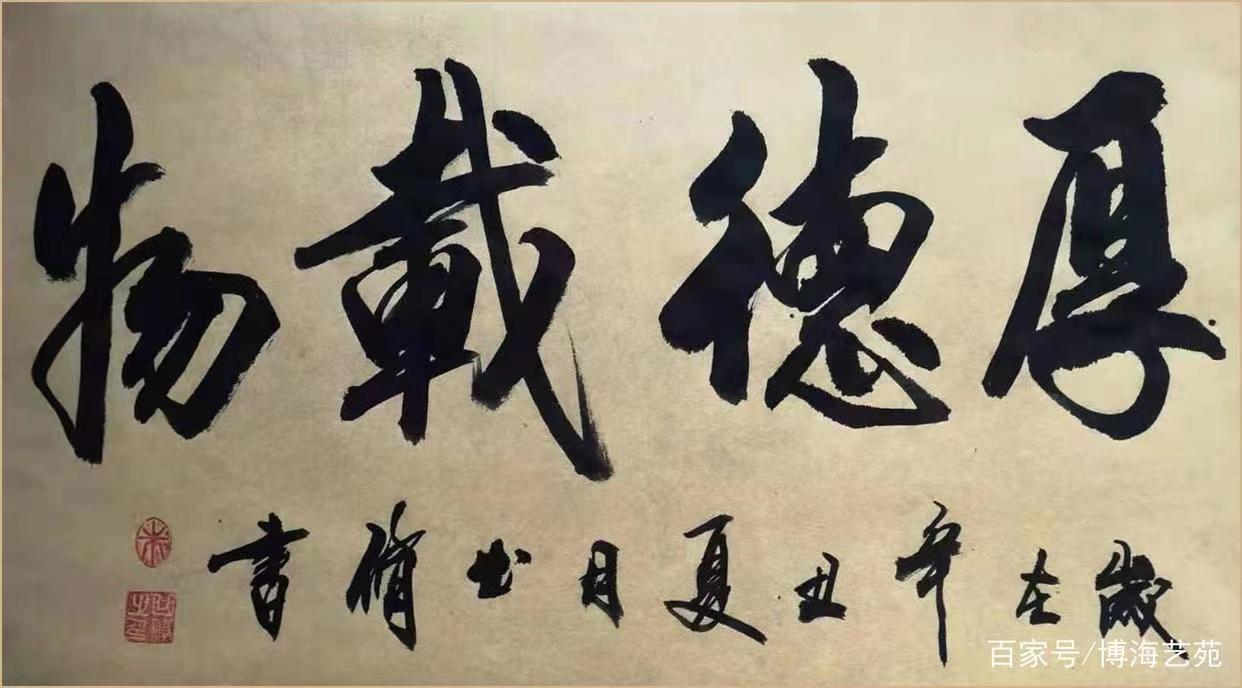 厚德載物
歲在辛丑夏月世脩書
朱
百家号/博海艺苑